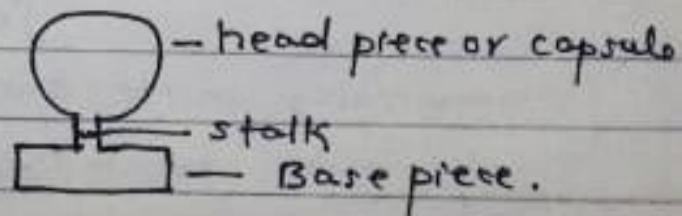 head piece or capsule
stalk
Base piece.